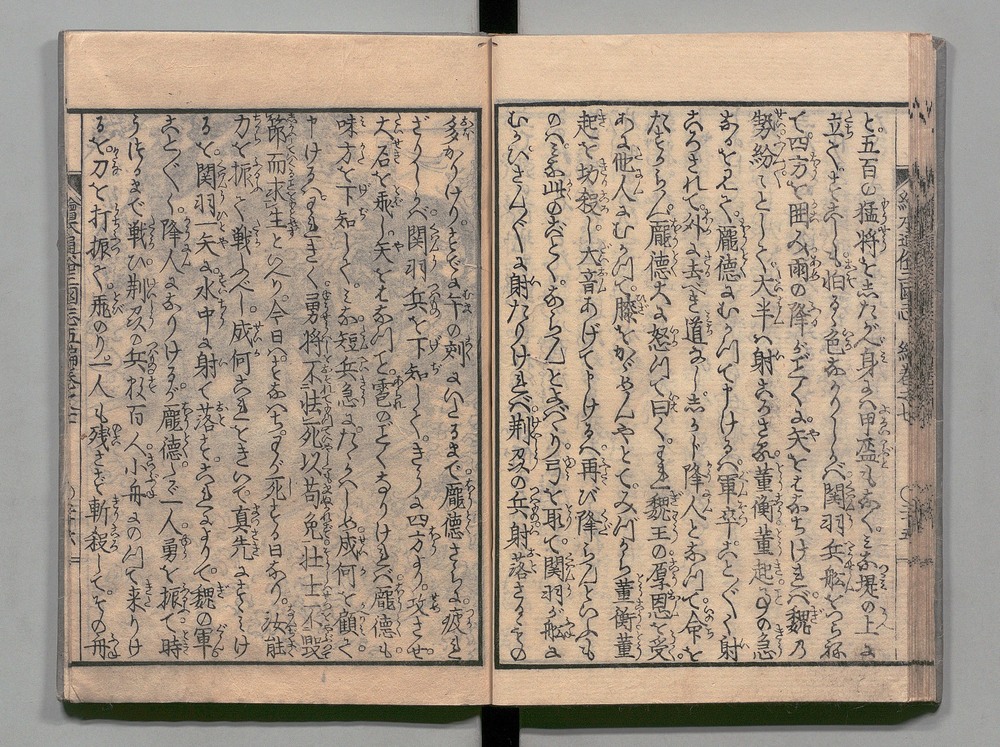 と五百の猛将をしたがへ身に甲盔もなくみな堤の上に
立てすこしも怕るゝ色なかりしかば関羽兵船をつらね
て四方を囲み雨の降がごとくに矢をはなちければ魏の
勢紛々として大半は射ころさる董衡董起このの急
なるを見て龐徳にむかつて申けるは軍卒ことごとく射
ころされて外に去べき道なししかじ降人となつて命を
たすからん龐徳大に怒つて曰くわれ魏王の厚恩を受
なんぞ他人にむかつて膝をかゞめんやとてみづから董衡董
起を切殺し大音あげて申けるは再び降らんといふも
のはみな此のごとくならんとよばゝり弓を取て関羽が船に
むかひさんざんに射たりければ荊州の兵射落さるゝもの
多かりけりすでに午の刻にいたるまで龐徳さらに疲れ
ざりしかば関羽兵を下知してきうに四方より攻させ
大石を飛し矢をはなつこと雹のごとくなりければ龐徳も
味方を下知してみな短兵急にたゝかはしめ成何を顧て
申けるはわれきく勇将不怯死以苟免壮士不毀
節而求生といへり今日はすなはちわが死する日なり汝能
力を振て戦ふべし成何これをきいて真先にすゝみける
るを関羽一矢に水中に射て落すこれによりて魏の軍
ことごとく降人になりけるが龐徳たゞ一人勇を振て時
うつるまで戦ひ荊州の兵数百人小舟にのつて来りけ
るを刀を打振て飛のり一人も残さず斬殺してその舟
繪本通俗三國志五編巻之七